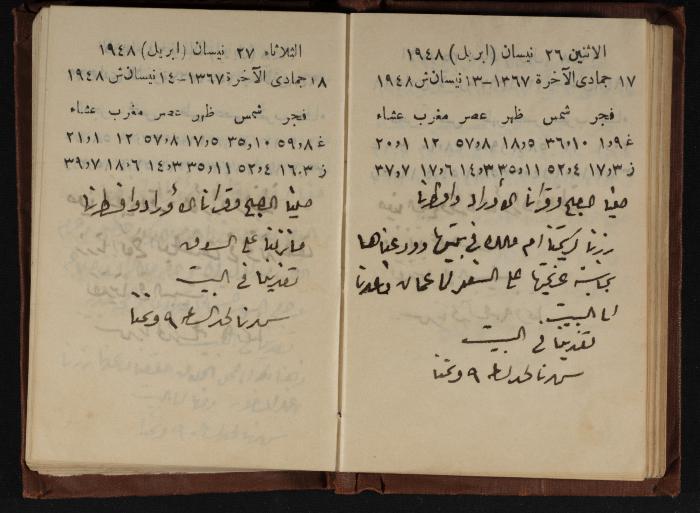 الاثنين ٢٦ نيسان (ابريل) ١٩٤٨
١٧ جمادى الآخرة ١٣٦٧-١٣ نيسان ش ١٩٤٨
فجر شمس ظهر عصر مغرب عشاء
غ ١٫٩ ١٠٫٣٦ ٥٫١٨ ٨٫٥٧ ١٢ ١٫٢٠
ز ٣٫١٧ ٤٫٥٢ ١١٫٣٥ ٣٫١٤ ٦٫١٧ ٧٫٣٧
صلينا الصبح وقرأنا الأوراد وافطرنا
زرنا كريمتنا ام في بيتها وودعناها
بمناسبة عزيمتها على السفر لعمان وعدنا
الى البيت.
تغدينا في البيت
سهرنا لحد الساعة ٩ ونمنا
الثلاثاء ٢٧ نيسان (ابريل) ١٩٤٨
١٨ جمادى الآخرة ١٣٦٧-١٤ نيسان ش ١٩٤٨
فجر شمس ظهر عصر مغرب عشاء
غ ٨٫٥٩ ١٠٫٣٥ ٥٫١٧ ٨٫٥٧ ١٢ ١٫٢١
ز ٣٫١٦ ٤٫٥٢ ١١٫٣٥ ٣٫١٤ ٦٫١٨ ٧٫٣٩
صلينا الصبح وقرأنا الأوراد وافطرنا
مانزلنا على السوق
تغدينا في البيت
سهرنا لحد الساعة ٩ ونمنا